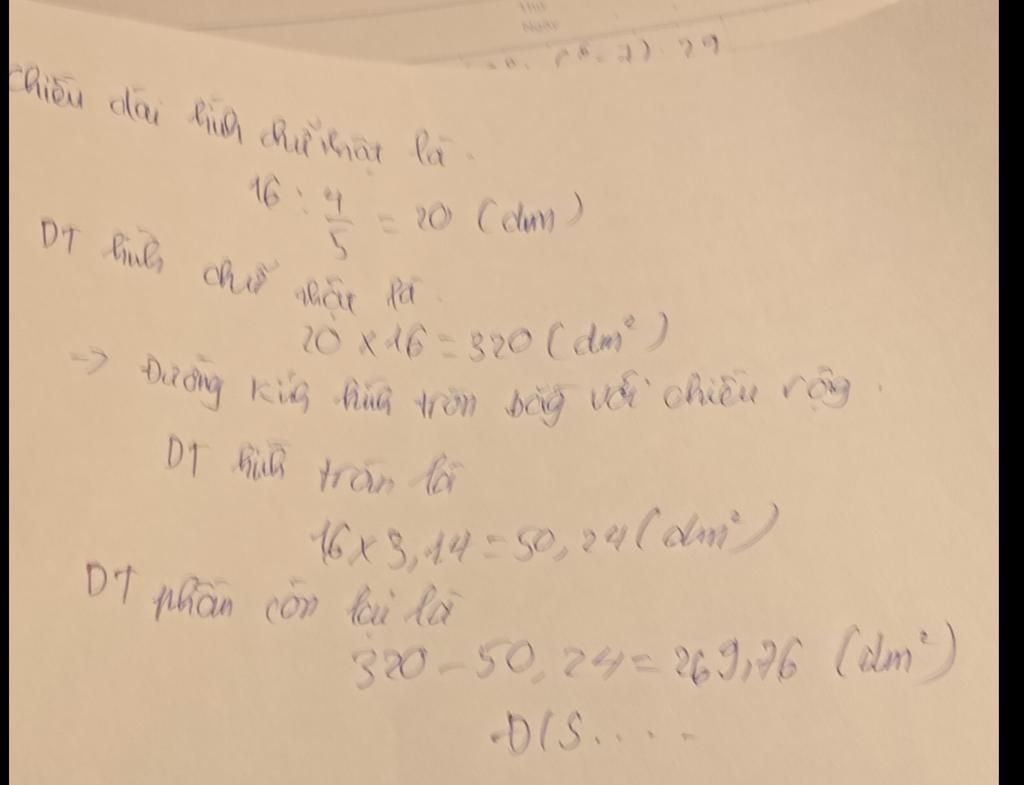 Chiều dài hình chữ nhật là.
16 : 4/5 = 20 (dm)
DT hình chữ nhật là.
20 x 16 = 320 (dm²)
-> Đường kính hình tròn bằg với chiều rộng.
DT hình tròn là
16 x 3,14 = 50,24 (dm²)
DT phần còn lại là
320 - 50,24 = 269,76 (dm²)
Đ(S....